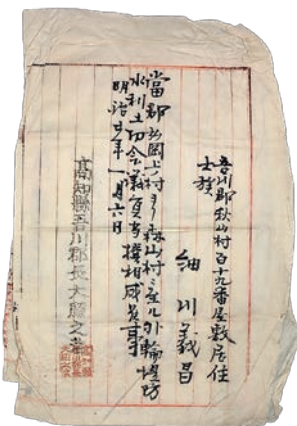 吾川郡秋山村百十九番屋敷居住
士族
細川義昌
當郡弘岡上村ヨリ森山村ニ至ル外輪堤防
水利土功会議員当撰相成候事
明治廿年一月六日
高知縣吾川郡長大脇之